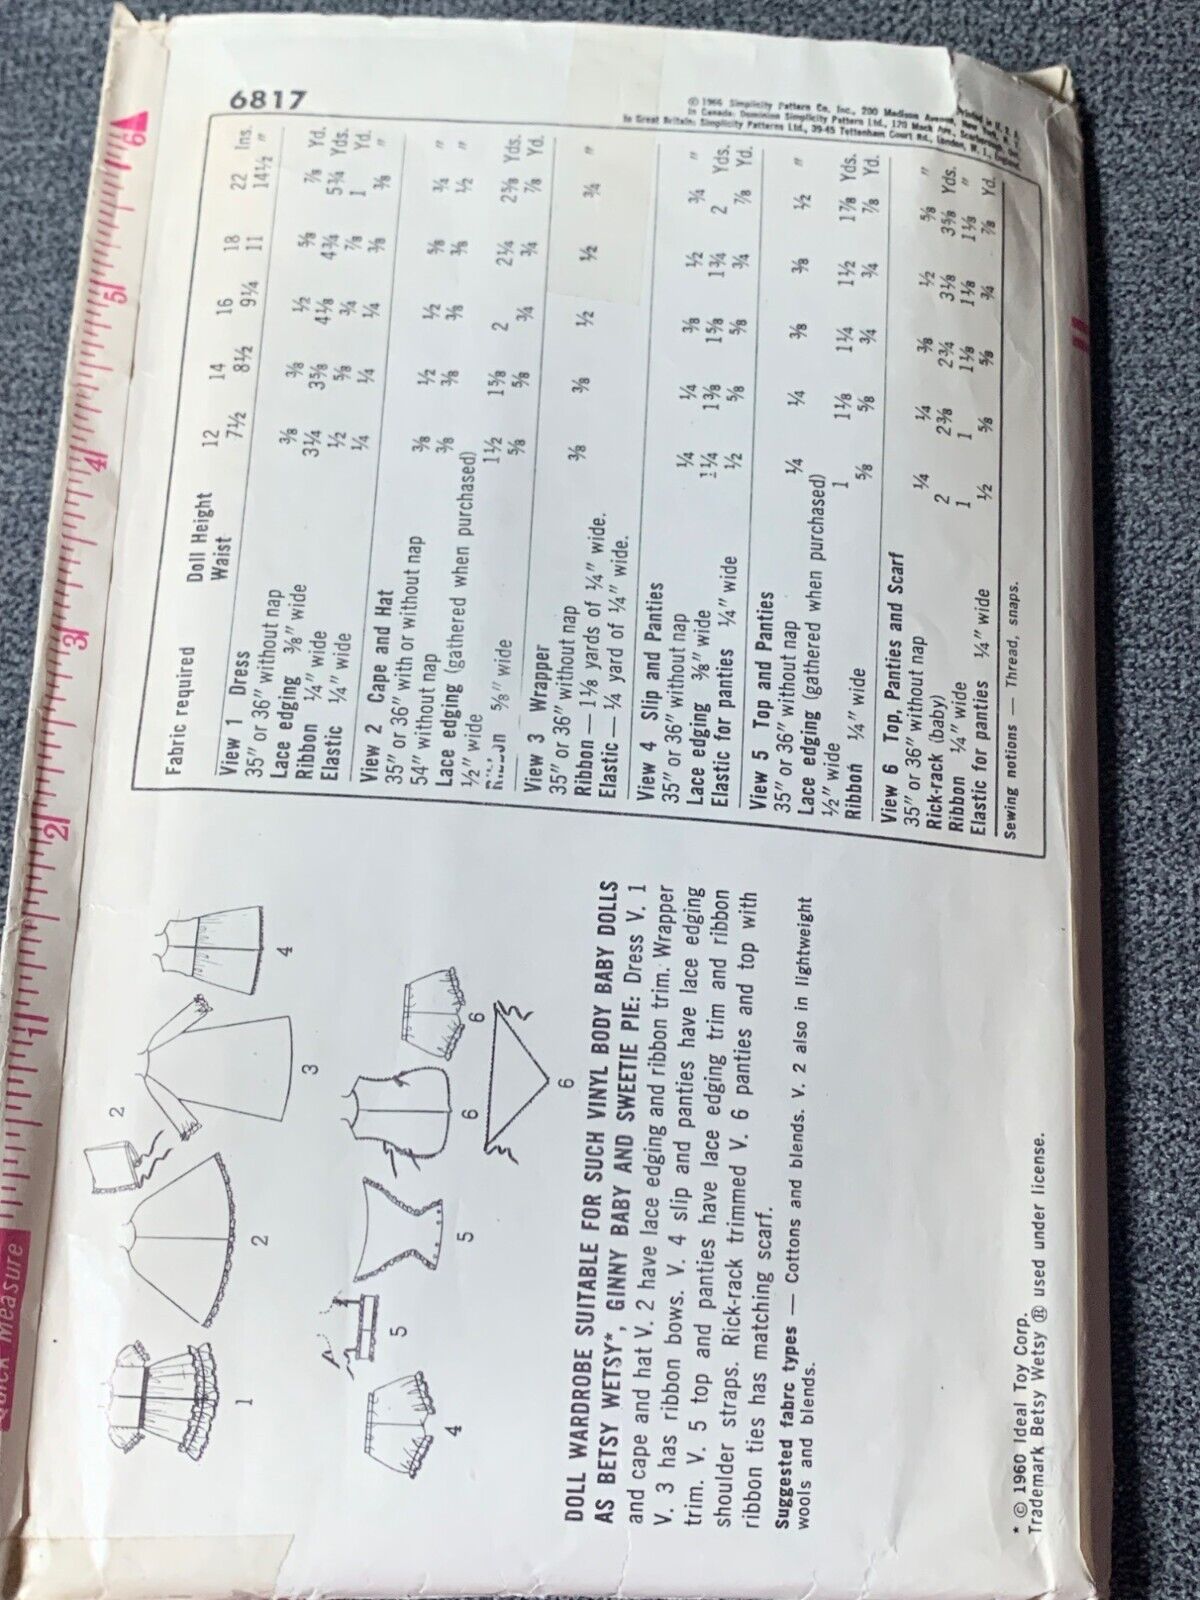 Quick Measure
1 2 3 4 5 6
1
2
2
3
4
4
5
5
6
6
6
DOLL WARDROBE SUITABLE FOR SUCH VINYL BODY BABY DOLLS
AS BETSY WETSY*, GINNY BABY AND SWEETIE PIE: Dress V. 1
and cape and hat V. 2 have lace edging and ribbon trim. Wrapper
V. 3 has ribbon bows. V. 4 slip and panties have lace edging
trim. V. 5 top and panties have lace edging trim and ribbon
shoulder straps. Rick-rack trimmed V. 6 panties and top with
ribbon ties has matching scarf.
Suggested fabrc types — Cottons and blends. V. 2 also in lightweight
wools and blends.
* © 1960 Ideal Toy Corp.
Trademark Betsy Wetsy ® used under license.
6817
© 1966 Simplicity Pattern Co., Inc., 200 Madison Avenue, New York,
In Canada: Dominion Simplicity Pattern Ltd., 120 Mack Ave.,
In Great Britain: Simplicity Patterns Ltd., 39-45 Tottenham Court Rd., London, W. 1.,
Printed in U. S. A.
Fabric required Doll Height 12 14 16 18 22 Ins.
Waist 7½ 8½ 9¼ 11 14½ "
View 1 Dress
35" or 36" without nap ⅜ ⅜ ½ ⅝ ⅞ Yd.
Lace edging ⅜" wide 3¼ 3⅝ 4⅛ 4¾ 5¾ Yds.
Ribbon ¼" wide ½ ⅝ ¾ ⅞ 1 Yd.
Elastic ¼" wide ¼ ¼ ¼ ⅜ ⅜ "
View 2 Cape and Hat
35" or 36" with or without nap ⅜ ½ ½ ⅝ ¾ "
54" without nap ⅜ ⅜ ⅜ ⅜ ½ "
Lace edging (gathered when purchased)
½" wide 1½ 1⅝ 2 2¼ 2⅜ Yds.
⅝" wide ⅝ ⅝ ¾ ¾ ⅞ Yd.
View 3 Wrapper
35" or 36" without nap ⅜ ⅜ ½ ½ ¾ "
Ribbon — 1⅛ yards of ¼" wide.
Elastic — ¼ yard of ¼" wide.
View 4 Slip and Panties
35" or 36" without nap ¼ ¼ ⅜ ½ ¾ "
Lace edging ⅜" wide 1¼ 1⅜ 1⅝ 1¾ 2 Yds.
Elastic for panties ¼" wide ½ ⅝ ⅝ ¾ ⅞ Yd.
View 5 Top and Panties
35" or 36" without nap ¼ ¼ ⅜ ⅜ ½ "
Lace edging (gathered when purchased)
½" wide 1 1⅛ 1¼ 1½ 1⅞ Yds.
Ribbon ¼" wide ⅝ ⅝ ¾ ¾ ⅞ Yd.
View 6 Top, Panties and Scarf
35" or 36" without nap ¼ ¼ ⅜ ½ ⅝ "
Rick-rack (baby) 2 2⅜ 2¾ 3⅛ 3⅝ Yds.
Ribbon ¼" wide 1 1 1⅛ 1⅛ 1⅛ "
Elastic for panties ¼" wide ½ ⅝ ⅝ ¾ ⅞ Yd.
Sewing notions — Thread, snaps.